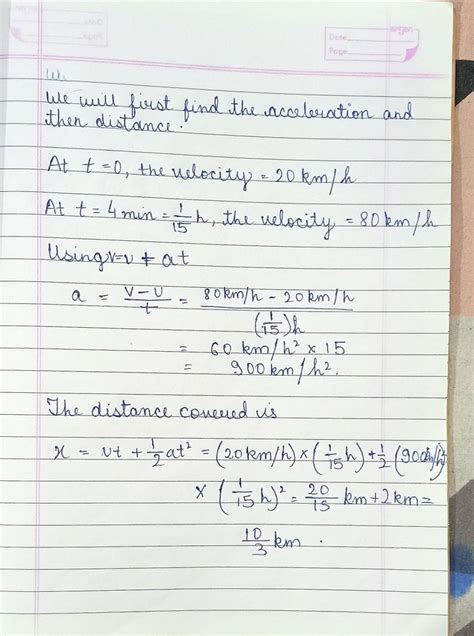 Date
Page
We will first find the acceleration and
then distance.
At t=0, the velocity = 20 km/h
At t = 4 min = 1/15 h, the velocity = 80 km/h
Using v=u + at
a = v-u/t = 80 km/h - 20 km/h/(1/15)h
= 60 km/h² × 15
= 900 km/h².
The distance covered is
x = ut + 1/2 at² = (20 km/h) × (1/15 h) + 1/2 (900 km/h²)
× (1/15 h)² = 20/15 km + 2 km =
10/3 km.